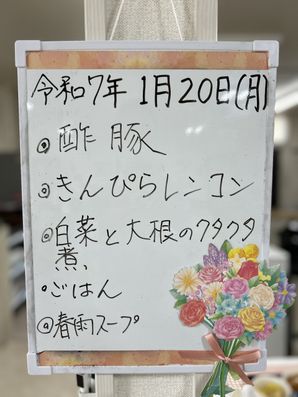 令和7年 1月20日(月)
◎酢豚
◎きんぴらレンコン
◎白菜と大根のクタクタ
煮
・ごはん
◎春雨スープ